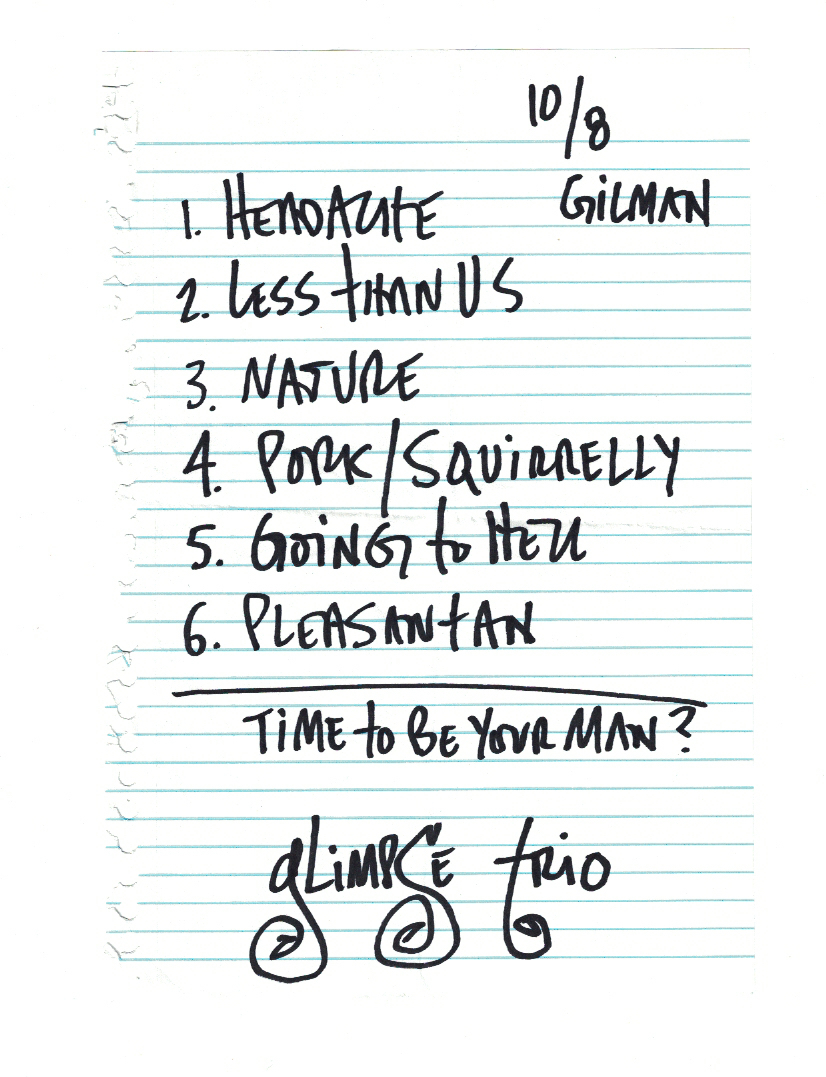 10/8
GiLMAN
1. HEADACHE
2. LESS tHAN US
3. NATURE
4. PORK/SQUiRRELLY
5. GOiNG to HELL
6. PLEASANtAN
TiME to BE YOUR MAN?
gLiMPSE tRiO